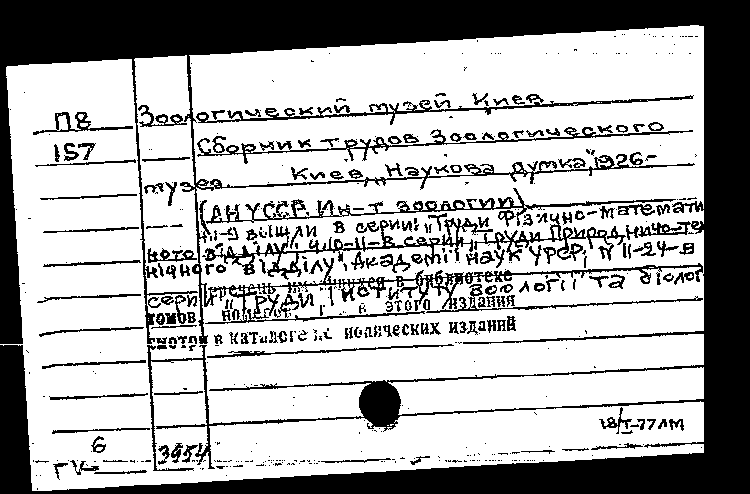 П8 Зоологический музей. Киев.
157 Сборник трудов Зоологического
музея. Киев, „Наукова думка", 1926-
(АН УССР. Ин-т зоологии)
вийшли в серии: „Труди Фізично-математи
ного відділу", ч.10-11-в серии „Труди Природничо-тех
нічного відділу", Академії наук УРСР, № 11-24-в
Перечень имеющихся в библиотеке
серии „Труди Інституту зоології та біолог
томов, номеров этого издания
смотри в каталоге периодических изданий
18/I-77 ЛМ
6
ГК 3954